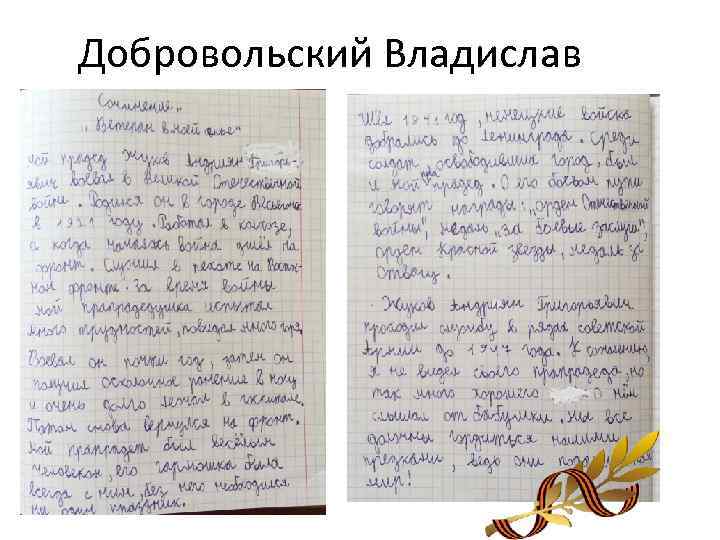 Добровольский Владислав
Сочинение
"Ветеран в моей семье"
мой прадед Жуков Андриян Григоре-
явич воевал в Великой Отечественной
войне. Родился он в городе
в 1921 году. Работал в колхозе,
а когда началась война ушёл на
фронт. Служил в пехоте на
ном фронте. За время войны
мой прапрадедушка испытал
много трудностей, повидал много горя.
Воевал он почти год, затем он
получил осколочное ранение в ногу
и очень долго лежал в госпитале.
Потом снова вернулся на фронт.
мой прапрадет был весёлым
человеком, его гармошка была
всегда с ним, без него необходился
ни один праздник.
Шёл 1941 год, немецкие войска
добрались до Ленинграда. Среди
солдат, освободивших город, был
и мой прапрадед. О его боевом пути
говорят награды: "орден Отечественной
войны", медаль "За боевые заслуги",
орден Красной звезды, медаль за
Отвагу.
Жуков Андриян Григорявич
проходил службу в рядах советской
Армии до 1947 года. К сожалению,
я не видел своего прапрадеда, но
так много хорошего о нём
слышал от бабушки. Мы все
должны гордиться нашими
предками, ведь они
мир!